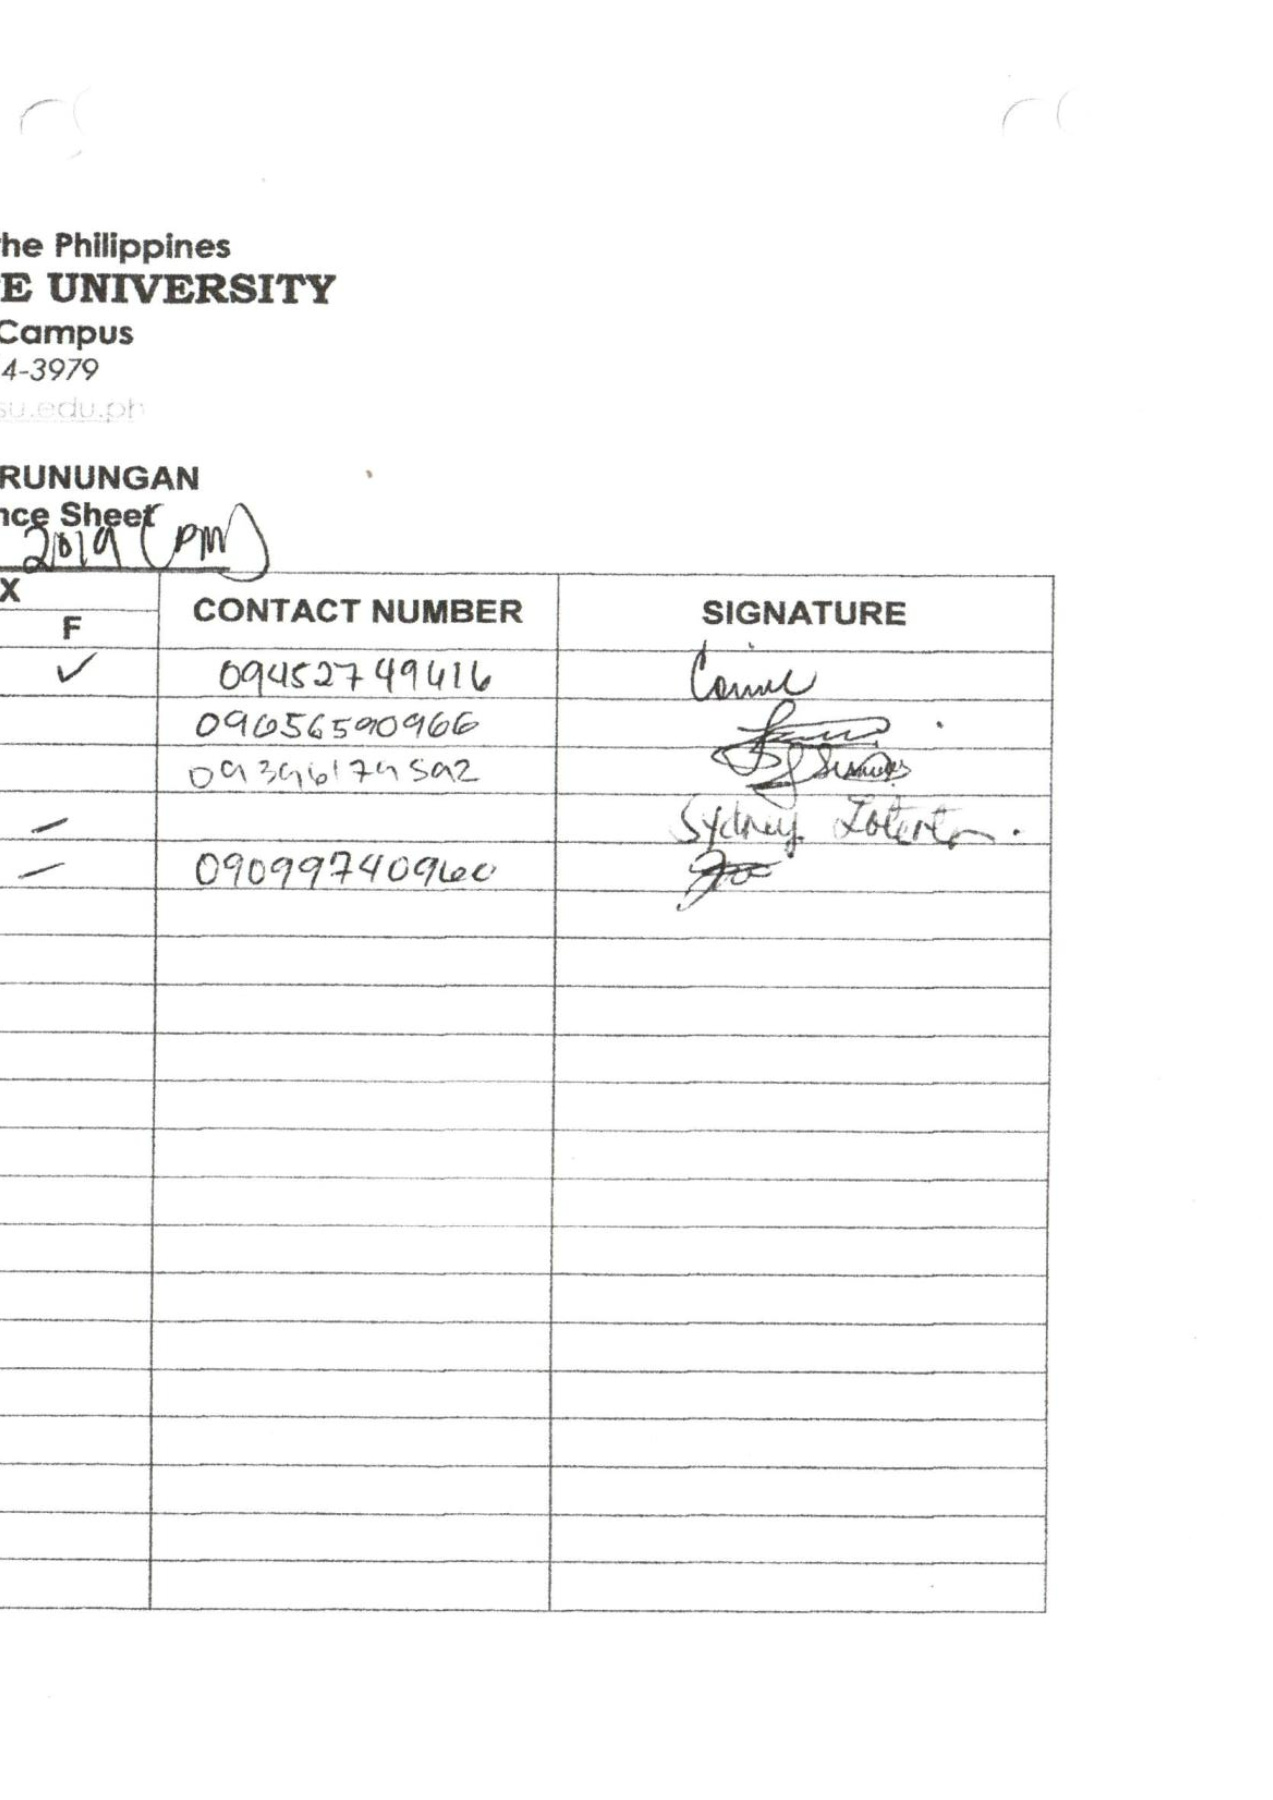 he Philippines
E UNIVERSITY
Campus
4-3979
su.edu.ph
RUNUNGAN
nce Sheet
2019 (PM)
X
F CONTACT NUMBER SIGNATURE
✓ 09452749416
09656590966
09396179592
Sydney
09099740960